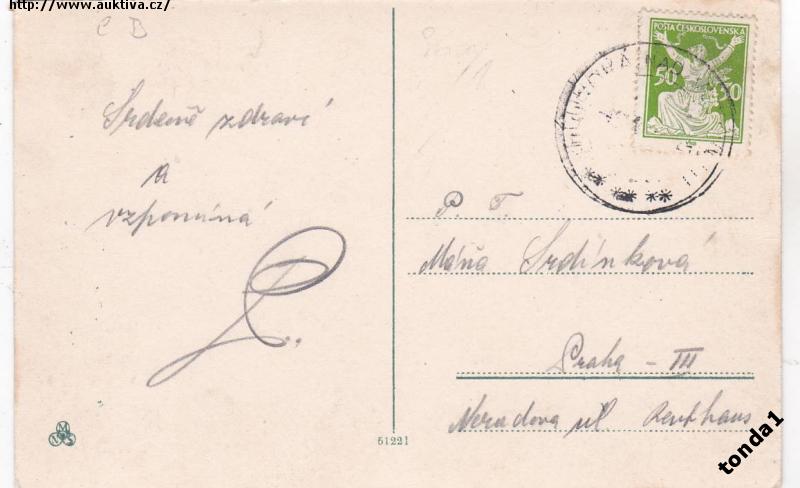 http://www.auktiva.cz/
C B
Srdečně zdraví
a
vzpomíná
L..
POŠTA ČESKOSLOVENSKÁ
50
P. T.
Máňa Srdínková
Praha - III
Nerudova ul
M
51221
tonda1